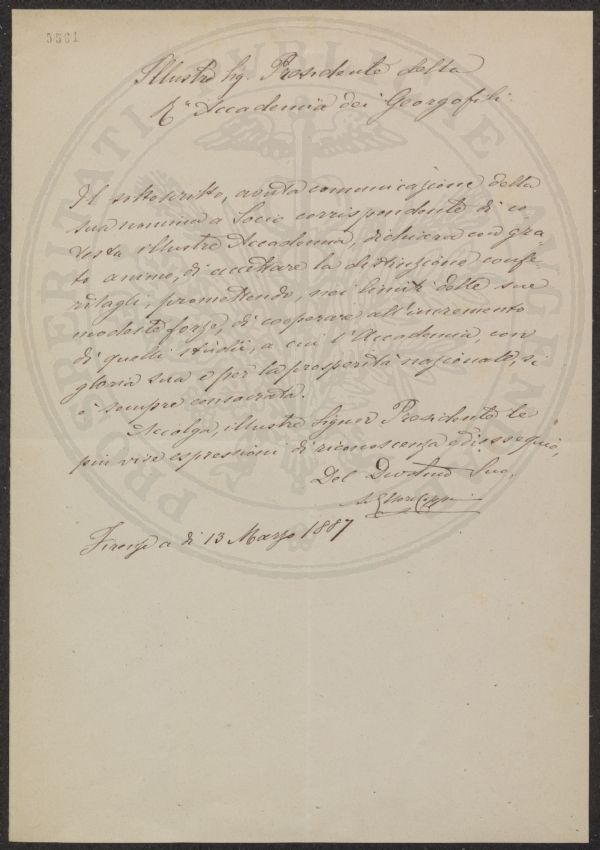 5561
Illustre Sig. Presidente della
Rª Accademia dei Georgofili.
Il sottoscritto, avuta comunicazione della
sua nomina a Socio corrispondente di co
testa illustre Accademia, dichiara con gra
to animo, di accettare la distinzione confe-
ritagli, promettendo, nei limiti delle sue
modeste forze, di cooperare all'incremento
di quelli studii, a cui l'Accademia, con
gloria sua e per la prosperità nazionale, si
è sempre consacrata.
Accolga, illustre Signor Presidente le
più vive espressioni di riconoscenza e di ossequio,
Del Devotmo Suo,
Firenze a di 13 Marzo 1887
PROSPERITATI PUBLICAE AUGENDAE